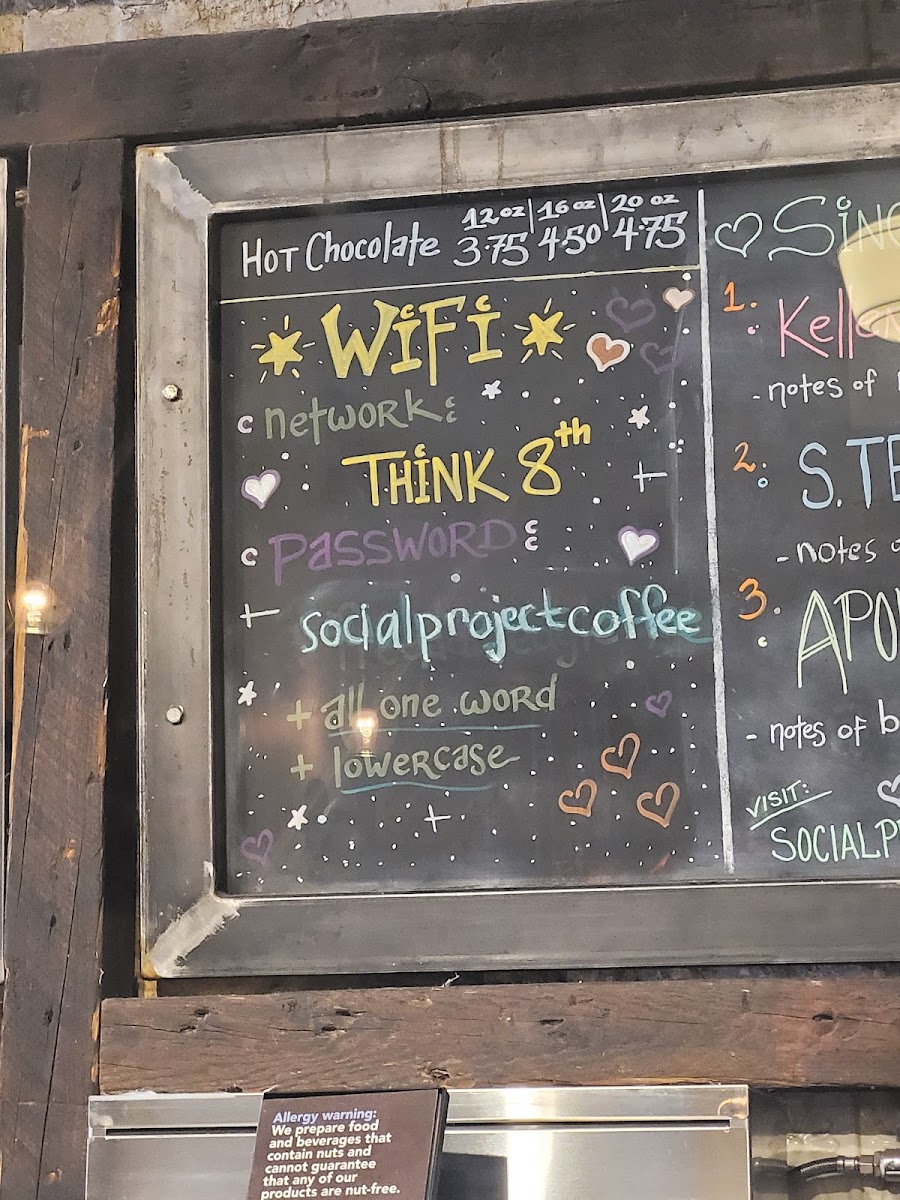 12 oz | 16 oz | 20 oz
Hot Chocolate 3.75 4.50 4.75
WiFi
network:
THINK 8th
PASSWORD:
socialprojectcoffee
+ all one word
+ lowercase
1.
- notes of
2.
- notes
3.
- notes of
VISIT:
Allergy warning:
We prepare food
and beverages that
contain nuts and
cannot guarantee
that any of our
products are nut-free.